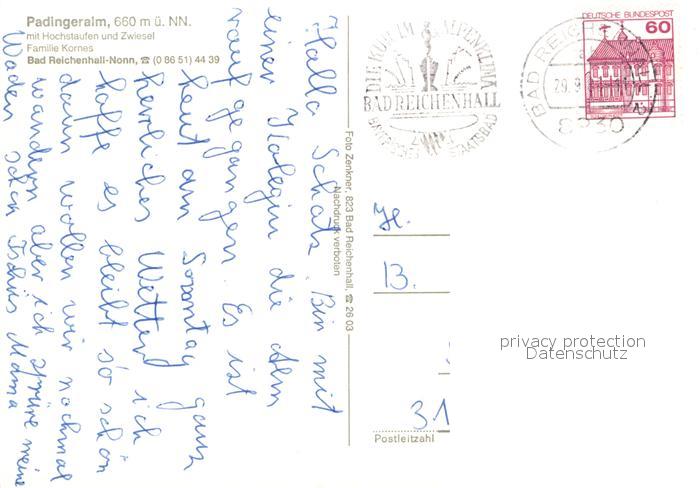 Padingeralm, 660 m ü. NN.
mit Hochstaufen und Zwiesel
Familie Kornes
Bad Reichenhall-Nonn, ☎ (0 86 51) 44 39
Hallo Schatz. Bin mit
einer Kolegin die Alm
rauf gegangen. Es ist
heut am Sonntag ganz
herrliches Wetter ich
hoffe es bleibt so schön
dann wollen wir nochmal
wandern aber ich spüre meine
Waden schon Tschüs Mama
Foto Zenkner, 823 Bad Reichenhall, ☎ 26 03
Nachdruck verboten
DIE KUR IM ALPENKLIMA
BAD REICHENHALL
BAYERISCHES STAATSBAD
DEUTSCHE BUNDESPOST
60
BAD REICHENHALL
29.9
8230
H.
B.
31
Postleitzahl
privacy protection
Datenschutz